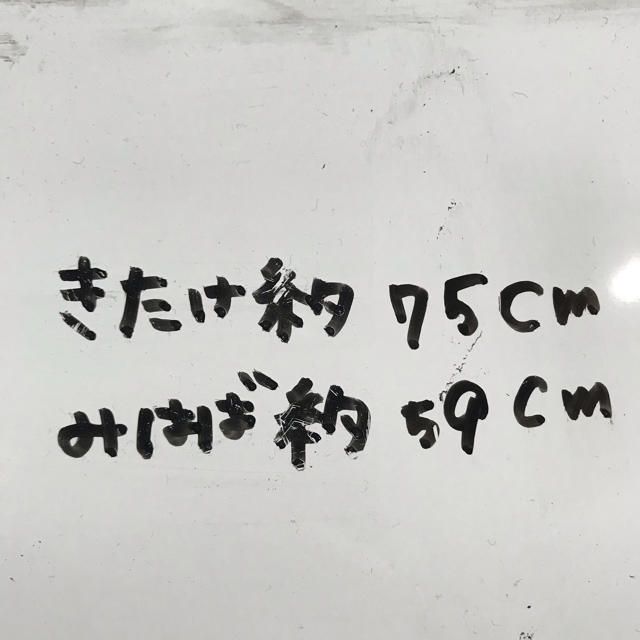 きたけ約 75cm
みはば約 59cm